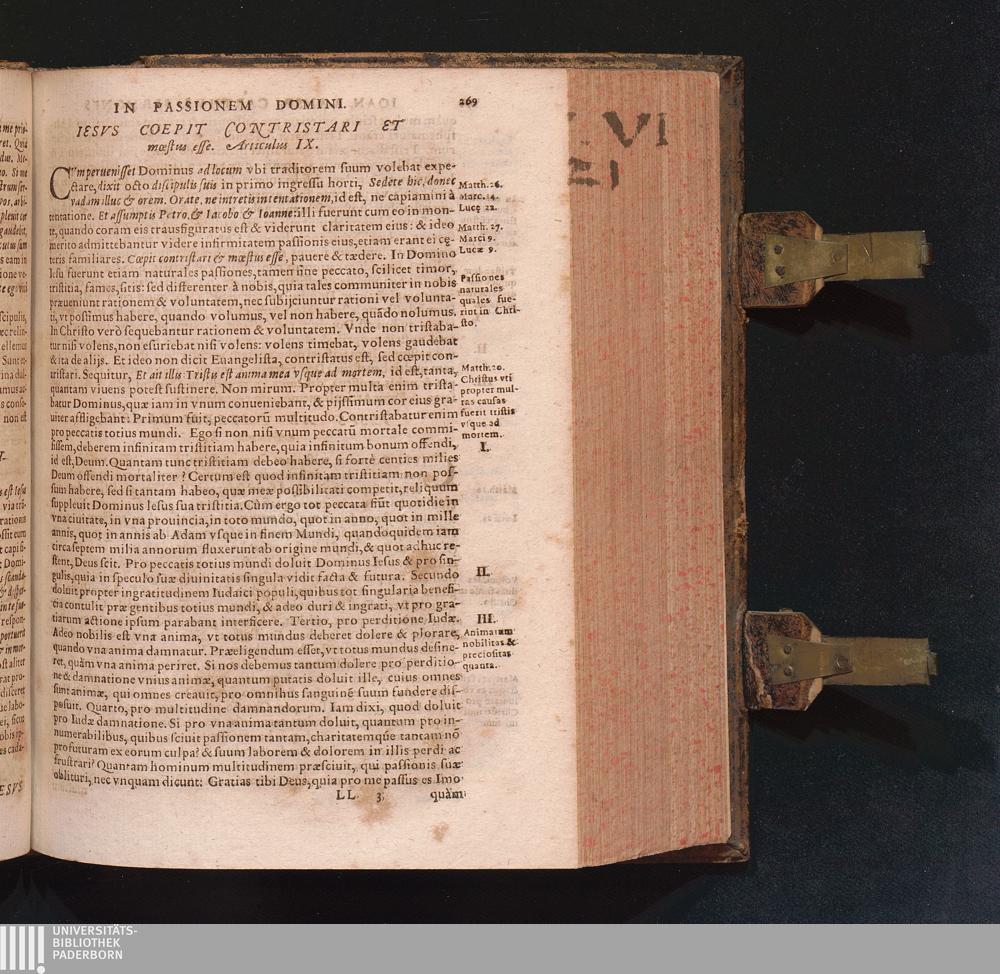 IN PASSIONEM DOMINI. 269
IESVS COEPIT CONTRISTARI ET
mœstus esse. Articulus IX.
CVm peruenisset Dominus ad locum vbi traditorem suum volebat expe-
ctare, dixit octo discipulis suis in primo ingressu horti, Sedete hic, donec
vadam illuc & orem. Orate, ne intretis in tentationem, id est, ne capiamini à
tentatione. Et assumptis Petro, & Iacobo & Ioanne: illi fuerunt cum eo in mon-
te, quando coram eis transfiguratus est & viderunt claritatem eius: & ideo
merito admittebantur videre infirmitatem passionis eius, etiam erant ei cę-
teris familiares. Cœpit contristari & mœstus esse, pauere & tædere. In Domino
Iesu fuerunt etiam naturales passiones, tamen sine peccato, scilicet timor,
tristitia, fames, sitis: sed differenter à nobis, quia tales communiter in nobis
præueniunt rationem & voluntatem, nec subijciuntur rationi vel volunta-
ti, vt possimus habere, quando volumus, vel non habere, quãdo nolumus.
In Christo verò sequebantur rationem & voluntatem. Vnde non tristaba-
tur nisi volens, non esuriebat nisi volens: volens timebat, volens gaudebat
& ita de alijs. Et ideo non dicit Euangelista, contristatus est, sed cœpit con-
tristari. Sequitur, Et ait illis Tristis est anima mea vsque ad mortem, id est, tanta,
quantam viuens potest sustinere. Non mirum. Propter multa enim trista-
batur Dominus, quæ iam in vnum conueniebant, & pijssimum cor eius gra-
uiter affligebant: Primum fuit, peccatorũ multitudo. Contristabatur enim
pro peccatis totius mundi. Ego si non nisi vnum peccatũ mortale commi-
sissem, deberem infinitam tristitiam habere, quia infinitum bonum offendi,
id est, Deum. Quantam tunc tristitiam debeo habere, si fortè centies milies
Deum offendi mortaliter? Certum est quod infinitam tristitiam non pos-
sum habere, sed si tantam habeo, quæ meæ possibilitati competit, reliquum
suppleuit Dominus Iesus sua tristitia. Cùm ergo tot peccata fiũt quotidie in
vna ciuitate, in vna prouincia, in toto mundo, quot in anno, quot in mille
annis, quot in annis ab Adam vsque in finem Mundi, quandoquidem iam
circa septem milia annorum fluxerunt ab origine mundi, & quot adhuc re-
stent, Deus scit. Pro peccatis totius mundi doluit Dominus Iesus & pro sin-
gulis, quia in speculo suæ diuinitatis singula vidit facta & futura. Secundo
doluit propter ingratitudinem Iudaici populi, quibus tot singularia benefi-
cia contulit præ gentibus totius mundi, & adeo duri & ingrati, vt pro gra-
tiarum actione ipsum parabant interficere. Tertio, pro perditione Iudæ.
Adeo nobilis est vna anima, vt totus mundus deberet dolere & plorare,
quando vna anima damnatur. Præeligendum esset, vt totus mundus desine-
ret, quàm vna anima periret. Si nos debemus tantum dolere pro perditio-
ne & damnatione vnius animæ, quantum putatis doluit ille, cuius omnes
sunt animæ, qui omnes creauit, pro omnibus sanguinẽ suum fundere dis-
posuit. Quarto, pro multitudine damnandorum. Iam dixi, quod doluit
pro Iudæ damnatione. Si pro vna anima tantum doluit, quantum pro in-
numerabilibus, quibus sciuit passionem tantam, charitatemque tantam nõ
profuturam ex eorum culpa? & suum laborem & dolorem in illis perdi ac
frustrari? Quantam hominum multitudinem præsciuit, qui passionis suæ
oblituri, nec vnquam dicunt: Gratias tibi Deus, quia pro me passus es Imo
LL 3 quàm
Matth. 26.
Marc. 14.
Lucę 22.
Matth. 27.
Marci 9.
Lucæ 9.
Passiones
naturales
quales fue-
rint in Chri-
sto.
Matth. 20.
Christus vti
propter mul-
tas causas
fuerit tristis
vsque ad
mortem.
I.
II.
III.
Animarum
nobilitas &
preciositas
quanta.
VI
UNIVERSITÄTS-
BIBLIOTHEK
PADERBORN